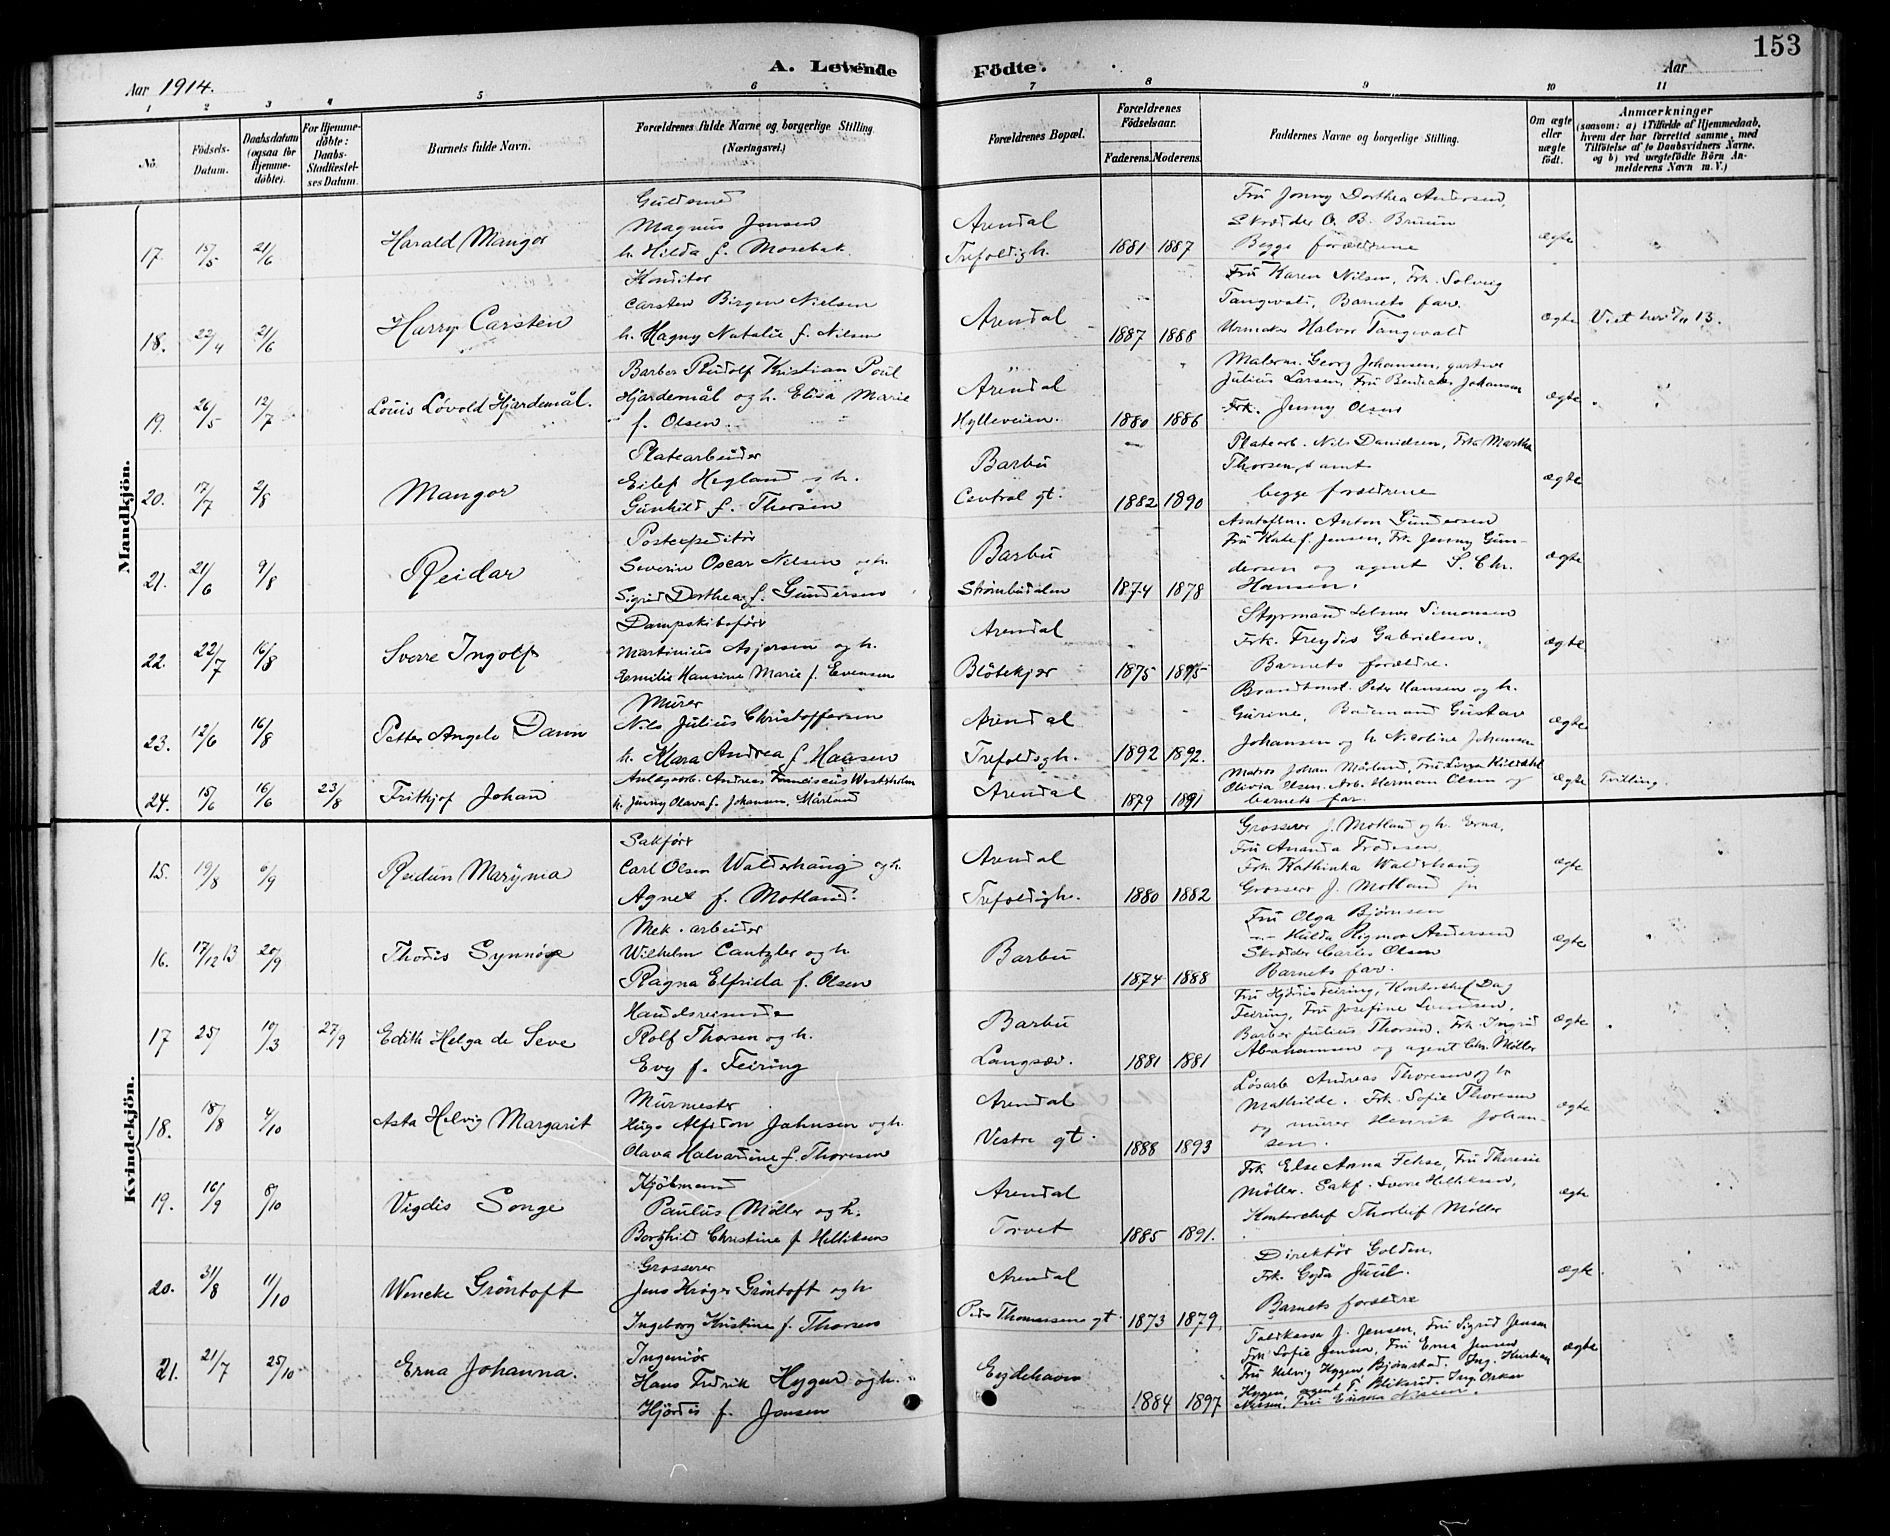 153
Aar 1914.
A. Levende Födte.
Aar
1 2 3 4 5 6 7 8 9 10 11
No.
Födsels-Datum.
Daabsdatum (ogsaa for Hjemmedöbte).
For Hjemmedöbte: Daabs-Stadfæstelses Datum.
Barnets fulde Navn.
Forældrenes fulde Navne og borgerlige Stilling (Næringsvei.)
Forældrenes Bopæl.
Forældrenes Födselsaar.
Faderens. Moderens.
Faddernes Navne og borgerlige Stilling.
Om ægte eller uægte födt.
Anmærkninger
(saasom: a) i Tilfælde af Hjemmedaab, hvem der har forrettet samme, med Tilföielse af to Daabsvidners Navne, og b) ved uægtefödte Börn Anmelderens Navn m. V.)
Mandkjön.
17. 15/5 21/6 Harald Mangor
Guldsmed
Magnus Jensen
h. Hilda f. Mosebak.
Arendal
Trefoldigh. 1881 1887
Fru Jenny Dorthea Andersen,
Skrædder O. B. Bruun
Begge forældrene
ægte
18. 22/4 21/6 Harry Carsten
Konditor
Carsten Birger Nielsen
h. Hagny Natalie f. Nilsen
Arendal 1887 1888
Fru Karen Nilsen, Frk. Solveig
Tangvald, Barnets far.
Urmaker Halvor Tangvald
ægte Viet her 13.
19. 26/5 12/7 Louis Lövold Hjardemål.
Barber Rudolf Kristian Poul
Hjardemål og h. Elisa Marie
f. Olsen.
Arendal
Hylleveien. 1880 1886
Malerm. Georg Johansen, gartner
Julius Larsen, Fru Johansen
Frk. Jenny Olsen
ægte
20. 17/7 2/8 Mangor
Platearbeider
Eilef Hegland h.
Gunhild f. Thorsen
Barbu
Central gt. 1882 1890
Platearb. Nils Danielsen, Frk Martha
Thorsen, samt
begge forældrene
ægte
21. 21/6 9/8 Reidar
Postexpeditör
Severin Oscar Nilsen og h.
Sigrid Dorthea f. Gundersen
Barbu
Strömbudalen 1874 1878
Anton Gundersen
Fru Kate f. Jensen, Frk. Jenny Gun-
dersen og agent S. Chr.
Hansen.
ægte
22. 22/7 16/8 Sverre Ingolf
Dampskibsförer
Martinius Asjersen og h.
Emilie Hansine Marie f. Evensen
Arendal
Blötekjær 1875 1895
Styrmand Selmer Simonsen
Frk. Freydis Gabrielsen.
Barnets forældre.
ægte
23. 12/6 16/8 Petter Angelo Dann
Murer
Nils Julius Christoffersen
h. Klara Andrea f. Hansen
Arendal
Trefoldigh. 1892 1892.
Brandkonst. Peter Hansen og h.
Gurine, Gustav
Johansen og h Nicoline Johansen
ægte
24. 15/6 16/6 23/8 Frithjof Johan
Anlægsarb. Andreas Franciscus
h. Jenny Olava f. Johansen, Mårland
Arendal 1879 1891
Matros Johan Mårland, Fru
Olivia Olsen. Arb. Herman Olsen og
barnets far.
ægte Tvilling.
Kvindekjön.
15. 19/8 6/9 Reidun Marÿma
Sakförer
Carl Olsen Walderhaug og h.
Agnes f. Motland.
Arendal
Trefoldigh. 1880 1882
Grosserer J. Motland og h. Erna,
Fru Amanda
Frk. Kathinka Walderhaug
Grosserer J. Motland jr
ægte
16. 17/12 13 20/9 Thordis Synnöve
Mek. arbeider
Wilhelm Cantzler og h.
Ragna Elfrida f. Olsen
Barbu 1874 1888
Fru Olga Björnsen
— Hulda Rigmor Andersen
Skrædder Carlos Olsen
Barnets far.
ægte
17 25/ 10/3 27/9 Edith Helga de Seve
Handelsreisende
Rolf Thorsen og h.
Evy f. Feiring
Barbu
Langsæv. 1881 1881
Fru Hjördis Feiring, Kontorchef Dag
Feiring, Fru Josefine Svendsen,
Barber Julius Thorsen. Frk. Ingrid
Abrahamsen og agent Chr. Möller
ægte
18. 18/8 4/10 Asta Helvig Margarit
Murmester
Hugo Alfidon Jahnsen og h.
Olava Halvardine f. Thoresen
Arendal
Vestre gt. 1888 1893
Lösarb Andreas Thoresen og h
Mathilde. Frk. Sofie Thoresen
og murer Henrik Johan-
sen.
ægte
19. 16/9 8/10 Vigdis Songe
Kjöbmand
Paulus Möller og h.
Borghild Christine f. Helliksen
Arendal
Torvet 1885 1891.
Frk. Else Anna Fehse, Fru Theresie
Möller. Sakf. Sverre Helliksen,
Kontorchef Thorleif Möller
ægte
20. 31/8 11/10 Wencke Gröntoft
Grosserer
Jens Kröger Gröntoft og h
Ingeborg Kristine f. Thorsen
Arendal
Peder Thomassens gt. 1873 1879.
Direktör Golden.
Frk. Gyda Juul.
Barnets forældre
ægte.
21. 21/7 25/10 Erna Johanna.
Ingeniör
Hans Fredrik Hygen og h.
Hjördis f. Jensen
Eydehavn 1884 1897
Toldkasser J. Jensen, Fru Sigrid Jensen
Frk. Sofie Jensen, Fru Erna Jensen
Fru Helvig Hygen Björnstad. Ing. Kristian
Hygen, agent T. Bliksrud. Ing. Oskar
Nissen, Fru Nissen.
ægte